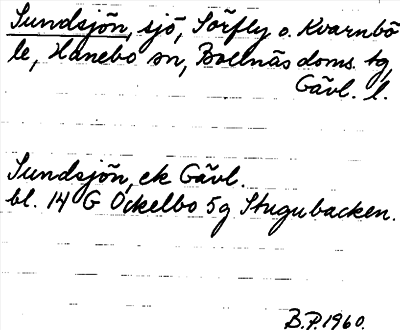 Sundsjön, sjö, Sörfly o. Kvarnbö
le, Hanebo sn, Bollnäs doms. tg,
Gävl. l.
Sundsjön, ek Gävl.
bl. 14 G Ockelbo 5g Stugubacken.
B.P. 1960.